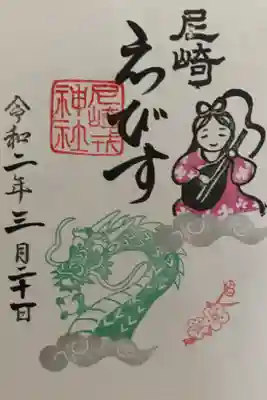 尼崎
えびす
尼崎戎
神社
令和二年三月二十日